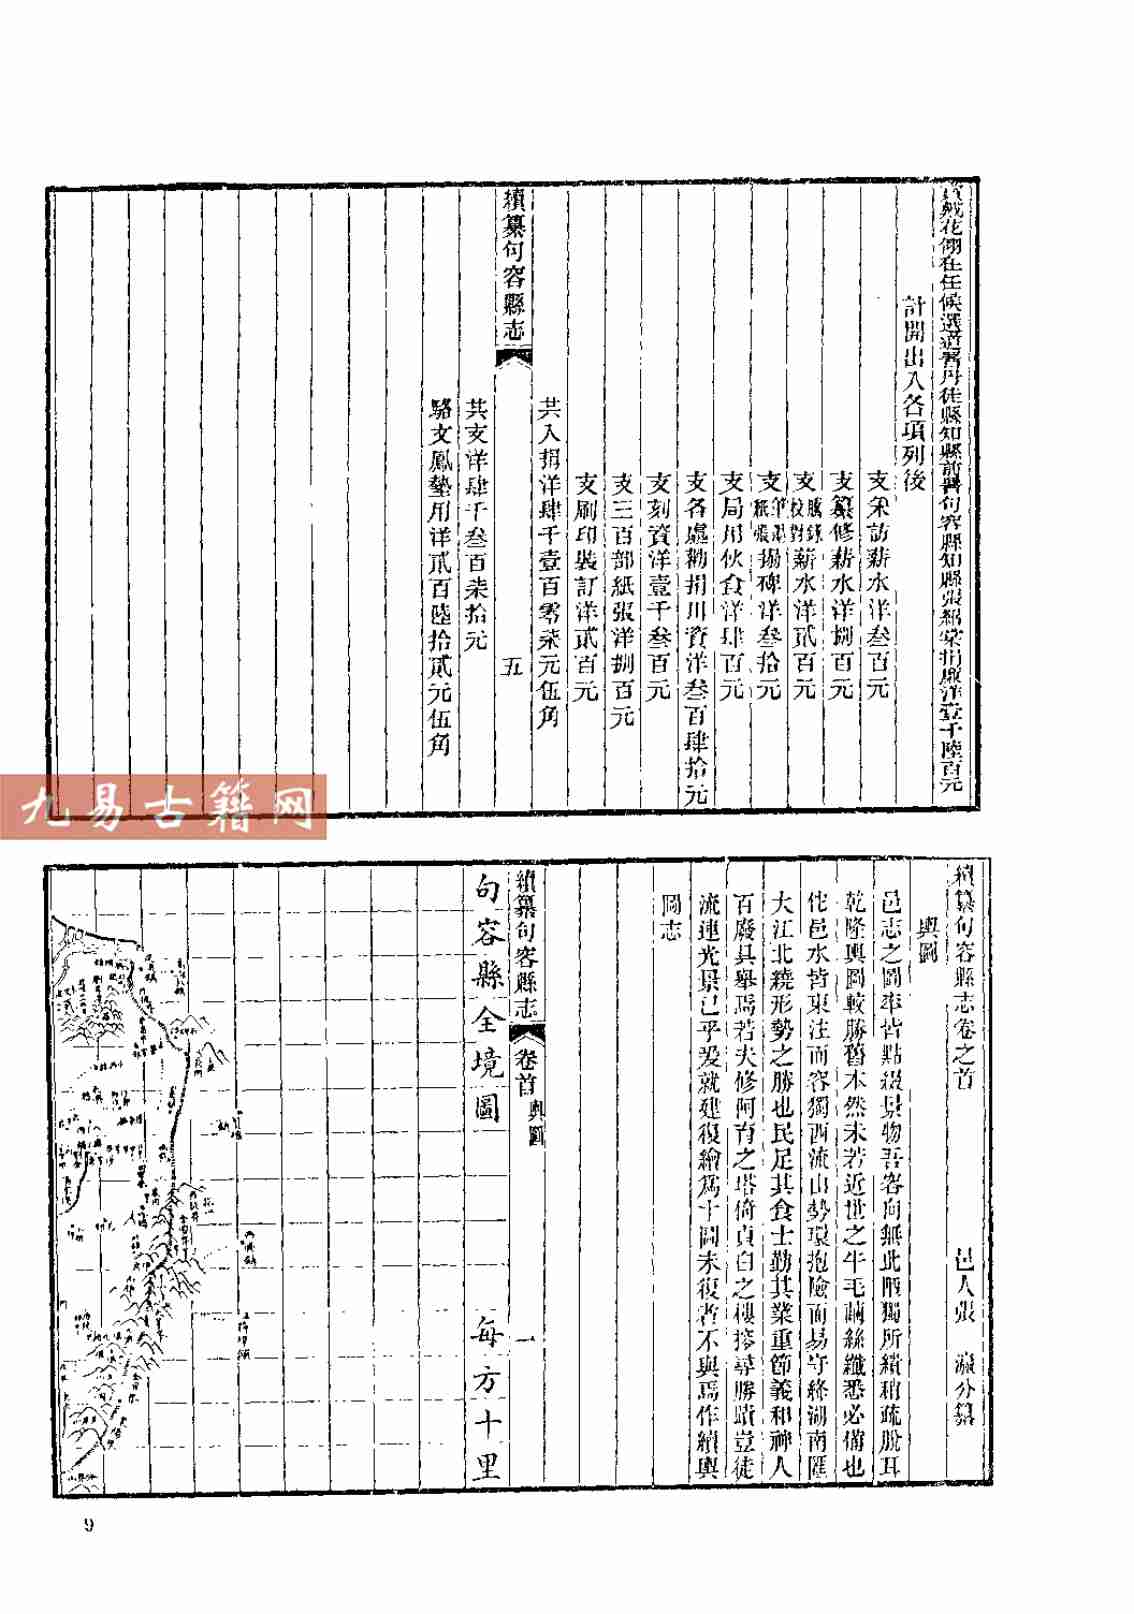 賞戴花翎在任候選道署丹徒縣知縣前署句容縣知縣張紹棠捐廉洋壹千陸百元
計開出入各項列後
支采訪薪水洋叁百元
支纂修薪水洋捌百元
支謄錄校對薪水洋貳百元
支筆墨紙張搨碑洋叁拾元
支局用伙食洋肆百元
支各處勸捐川資洋叁百肆拾元
支刻資洋壹千叁百元
支三百部紙張洋捌百元
支刷印裝訂洋貳百元
共入捐洋肆千壹百零柒元伍角
續纂句容縣志
五
共支洋肆千叁百柒拾元
駱文鳳墊用洋貳百陸拾貳元伍角
九易古籍网
續纂句容縣志卷之首
邑人張 瀛分纂
輿圖
邑志之圖率皆點綴景物吾容向無此陋獨所績稍疏脫耳
乾隆輿圖較勝舊本然未若近世之牛毛繭絲纖悉必備也
佗邑水皆東注而容獨西流山勢環抱險而易守絳湖南匯
大江北繞形勢之勝也民足其食士勤其業重節義和神人
百廢具舉焉若夫修阿育之塔倚貞白之樓搴尋勝蹟豈徒
流連光景已乎爰就建復繪爲十圖未復者不與焉作續輿
圖志
續纂句容縣志
卷首
輿圖
一
句容縣全境圖
每方十里
9